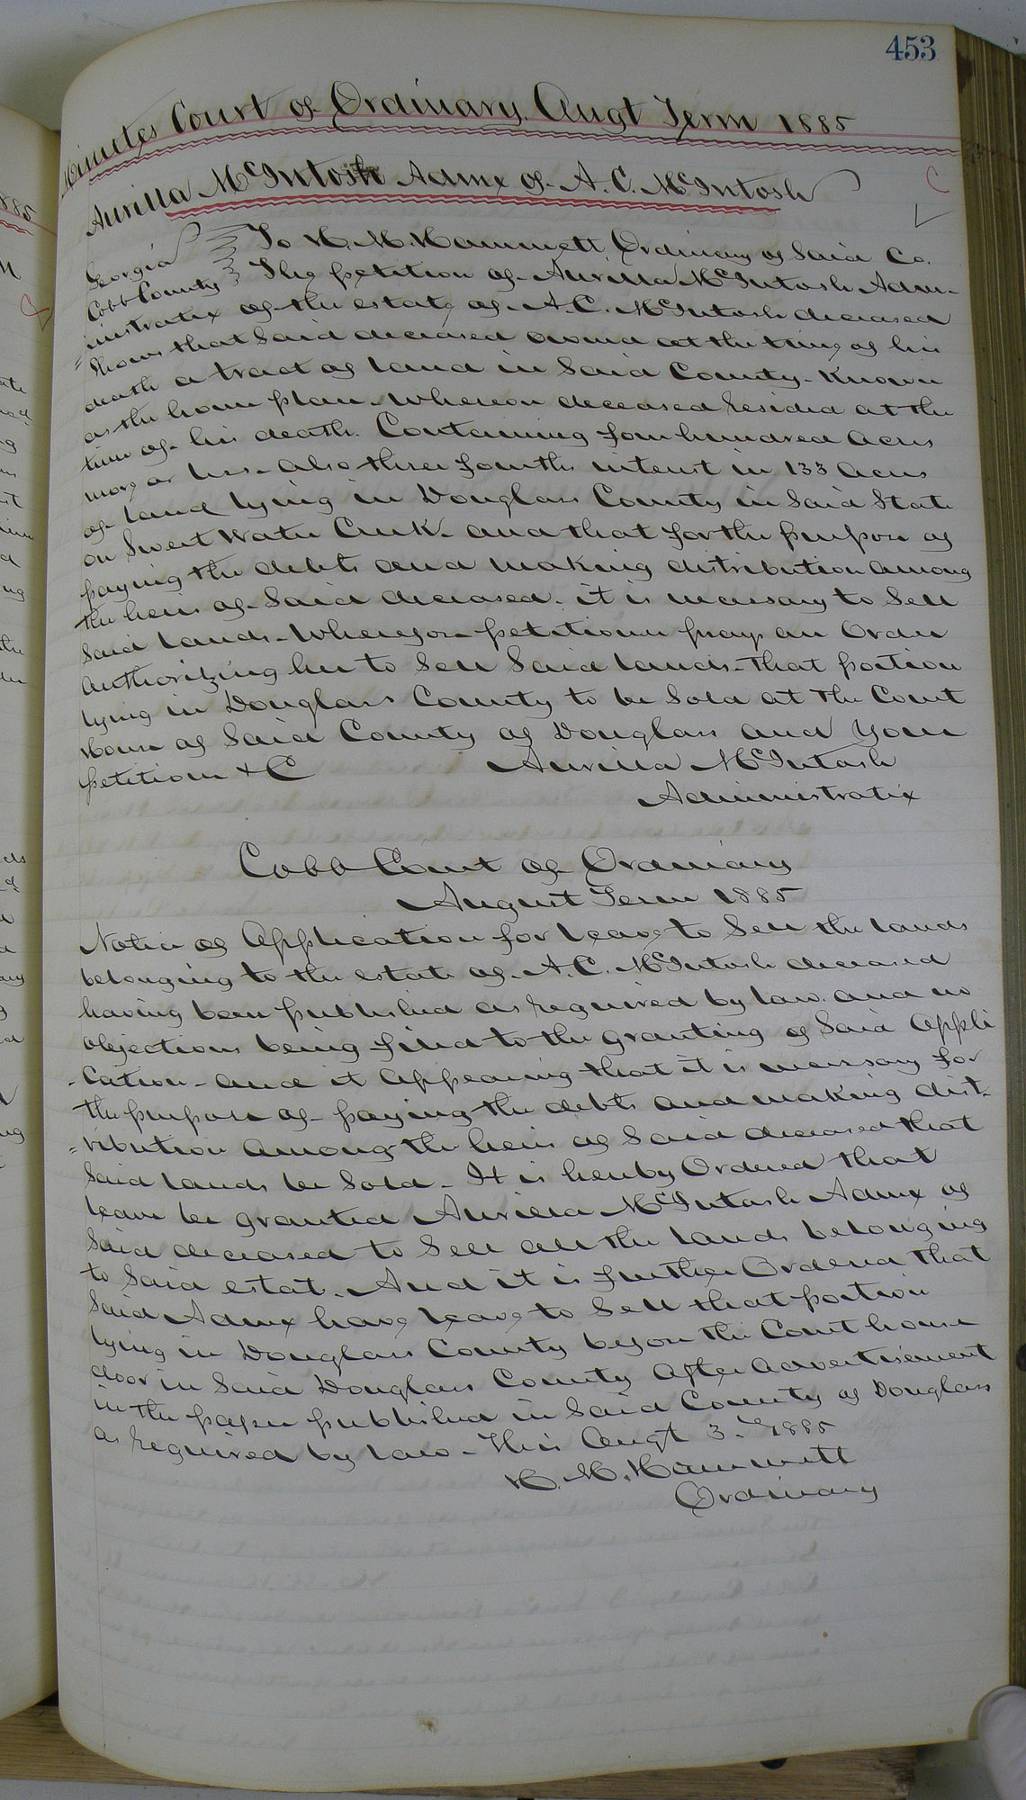 453
Minutes Court of Ordinary Augt Term 1885
Aurilla McIntosh Admx of A. C. McIntosh
Georgia
Cobb County
To H. M. Hammett Ordinary of Said Co.
The petition of Aurilla McIntosh Admi-
=nistratix of the estate of A. C. McIntosh deceased
Shows that Said deceased owned at the time of his
death a tract of land in Said County. Known
as the home place. Whereon deceased resided at the
time of his death. Containing four hundred acres
more or less. also three fourths interest in 133 acres
of land lying in Douglass County in Said State
on Sweet Water Creek. and that for the purpose of
paying the debts and making distribution among
the heirs of Said deceased. it is necessary to Sell
Said Lands. Wherefore petitioner prays an Order
authorizing her to Sell Said lands. that portion
lying in Douglass County to be Sold at the Court
House of Said County of Douglass and your
petitioner &C Aurilla McIntosh
Administratix
Cobb Court of Ordinary
August Term 1885
Notice of Application for leave to Sell the lands
belonging to the estate of A. C. McIntosh deceased
having been published as required by law. and no
objections being filed to the granting of Said Appli
-cation. and it appearing that it is necessary for
the purpose of paying the debts and making dist-
=ribution among the heirs of Said deceased that
Said lands be Sold. It is hereby Ordered that
leave be granted Aurilla McIntosh Admx of
Said deceased to Sell all the lands belonging
to Said estate. And it is further Ordered that
Said Admx have leave to Sell that portion
lying in Douglass County before the Court house
door in Said Douglass County after advertisement
in the paper published in Said County of Douglass
as required by law. This Augt 3. 1885
H. M. Hammett
Ordinary